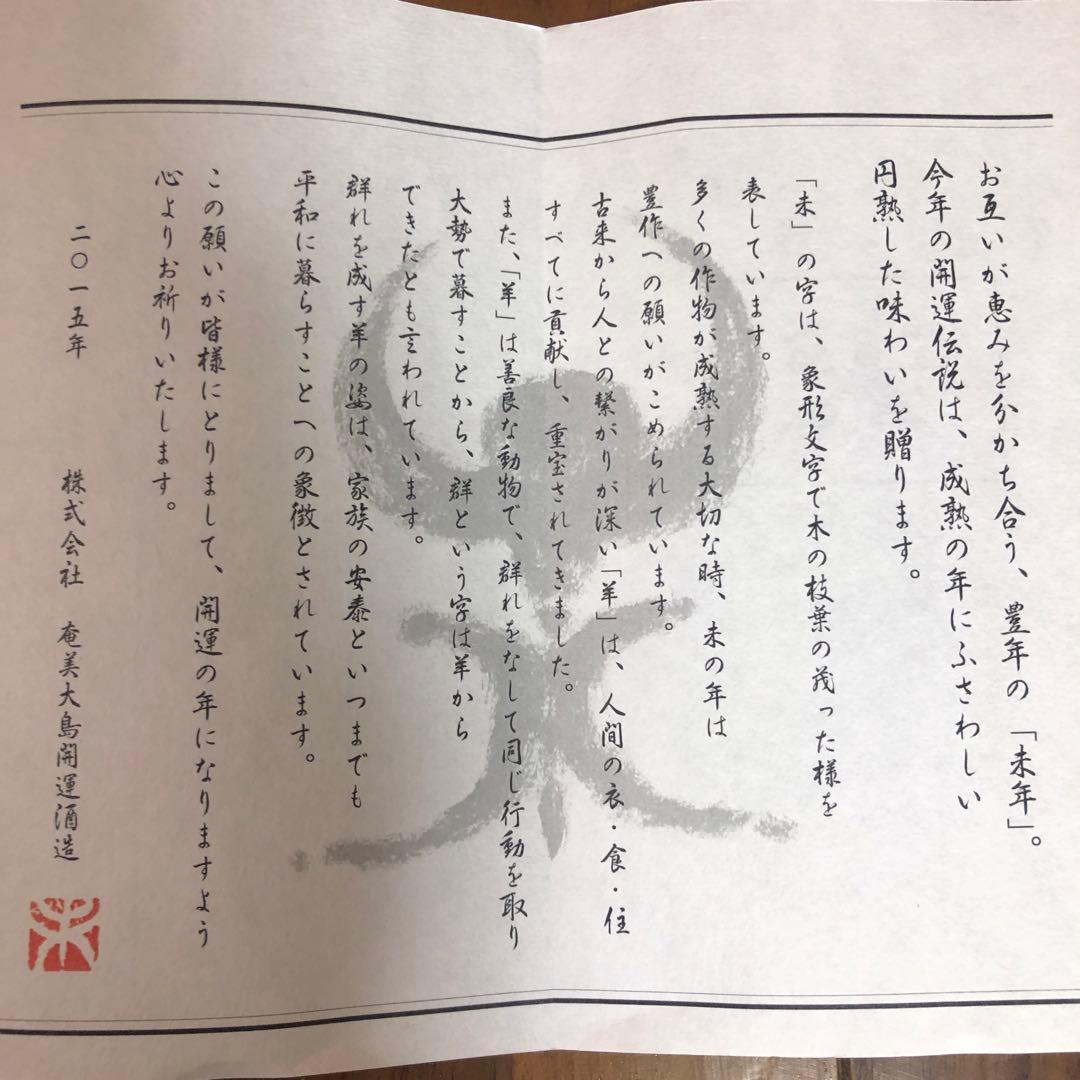 お互いが恵みを分かち合う、豊年の「未年」。
今年の開運伝説は、成熟の年にふさわしい
円熟した味わいを贈ります。
「未」の字は、象形文字で木の枝葉の茂った様を
表しています。
多くの作物が成熟する大切な時、未の年は
豊作への願いがこめられています。
古来から人との繋がりが深い「羊」は、人間の衣・食・住
すべてに貢献し、重宝されてきました。
また、「羊」は善良な動物で、群れをなして同じ行動を取り
大勢で暮すことから、群という字は羊から
できたとも言われています。
群れを成す羊の姿は、家族の安泰といつまでも
平和に暮らすことへの象徴とされています。
この願いが皆様にとりまして、開運の年になりますよう
心よりお祈りいたします。
二〇一五年 株式会社 奄美大島開運酒造
未